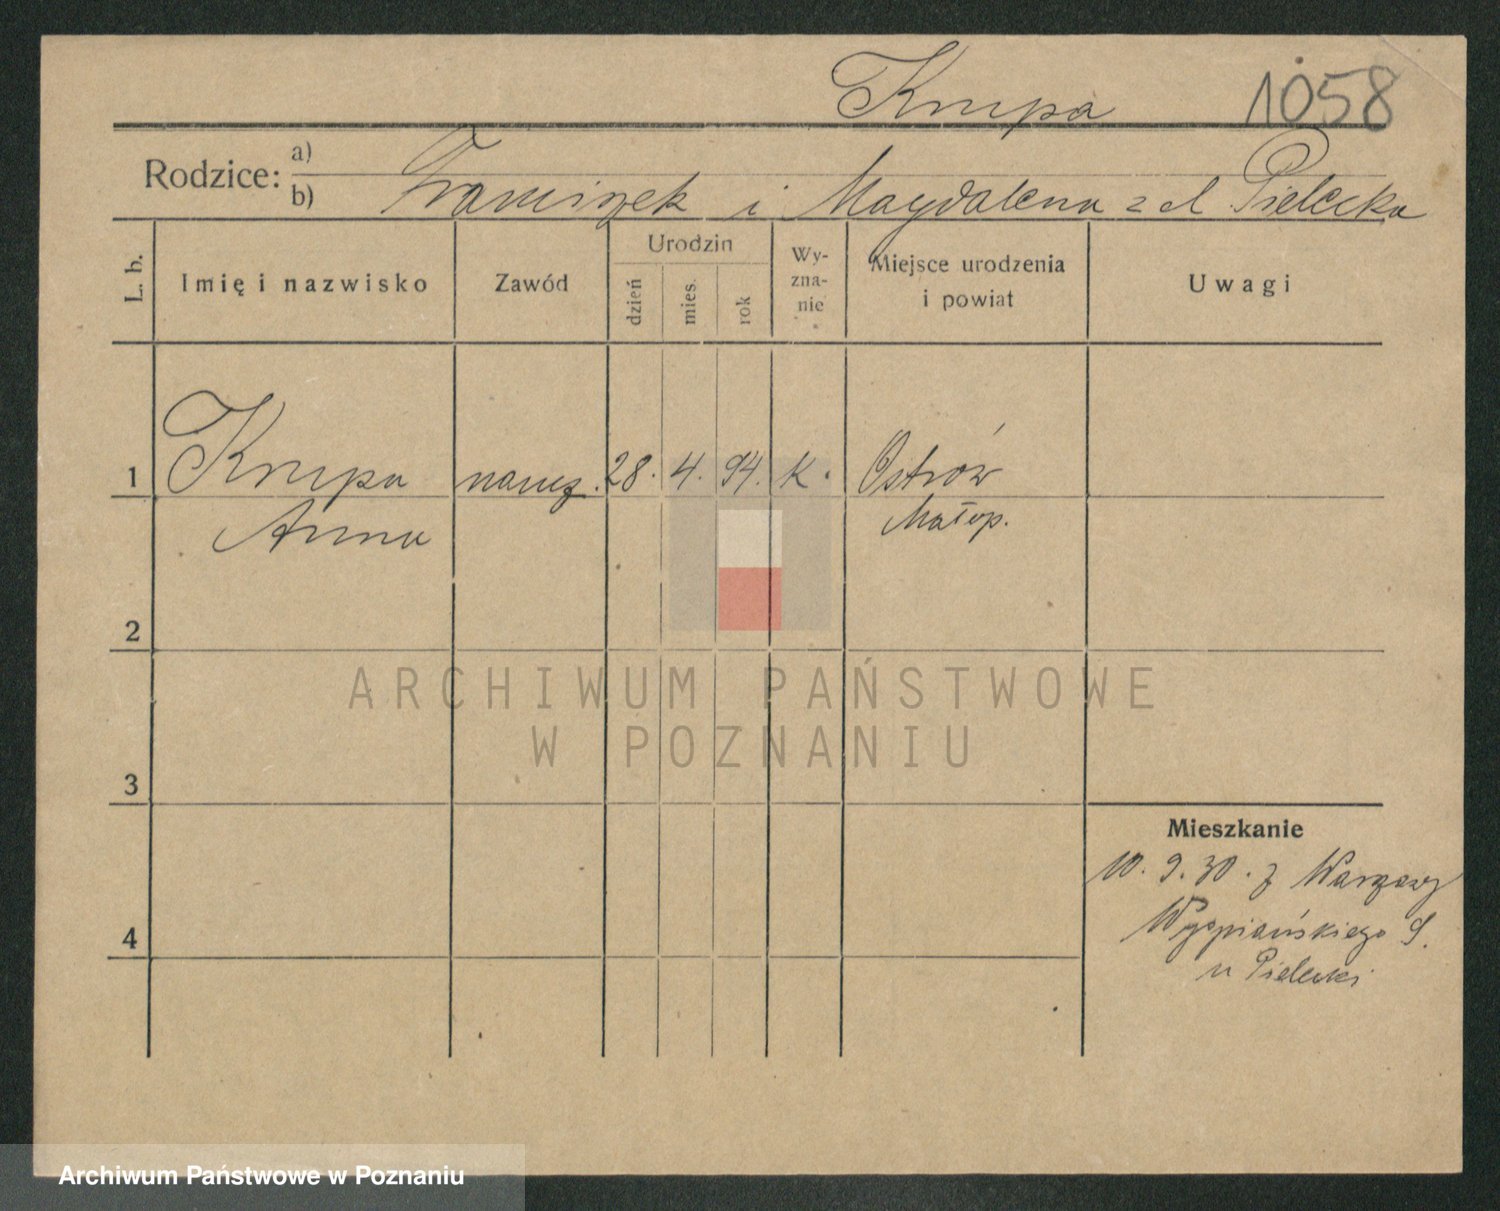 Krupa 1058
Rodzice: a)
b) Franciszek i Magdalena z d Pielecka
L. b. Imię i nazwisko Zawód Urodzin dzień mies. rok Wy-zna-nie Miejsce urodzenia i powiat Uwagi
1 Krupa naucz. 28. 4. 94. k. Ostrów
Anna Małop.
2
ARCHIWUM PAŃSTWOWE
W POZNANIU
3
Mieszkanie
10. 9. 30. z Warszawy
4 Wyspiańskiego
u Pielecki
Archiwum Państwowe w Poznaniu